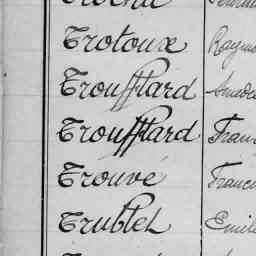 Trotoux Raym
Troufflard Amédé
Troufflard Franc
Trouvé Franc
Trublet Emile